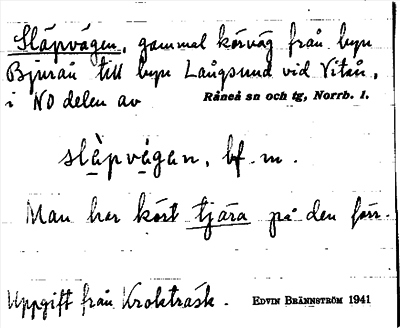 Släpvägen, gammal körväg från byn
Bjurån till byn Långsund vid Vitån,
i NO delen av Råneå sn och tg, Norrb. l.
slä̀pvä̀gan, bf. m.
Man har kört tjära på den förr.
Uppgift från Krokträsk. EDVIN BRÄNNSTRÖM 1941